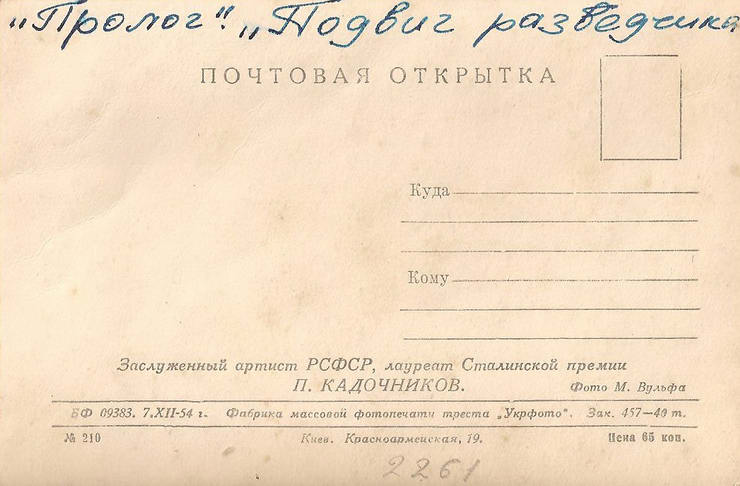 „Пролог". „Подвиг разведчика
ПОЧТОВАЯ ОТКРЫТКА
Куда
Кому
Заслуженный артист РСФСР, лауреат Сталинской премии
П. КАДОЧНИКОВ.
Фото М. Вульфа
БФ 09383. 7.XII-54 г. Фабрика массовой фотопечати треста „Укрфото". Зак. 457—40 т.
№ 210 Киев. Красноармейская, 19. Цена 65 коп.
2261